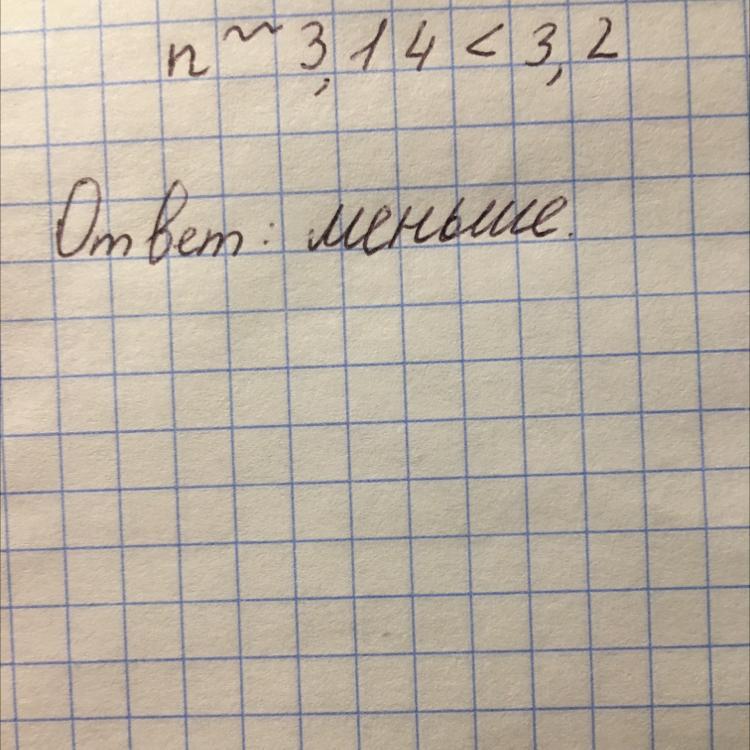 п ~ 3,14 < 3,2
Ответ: меньше.